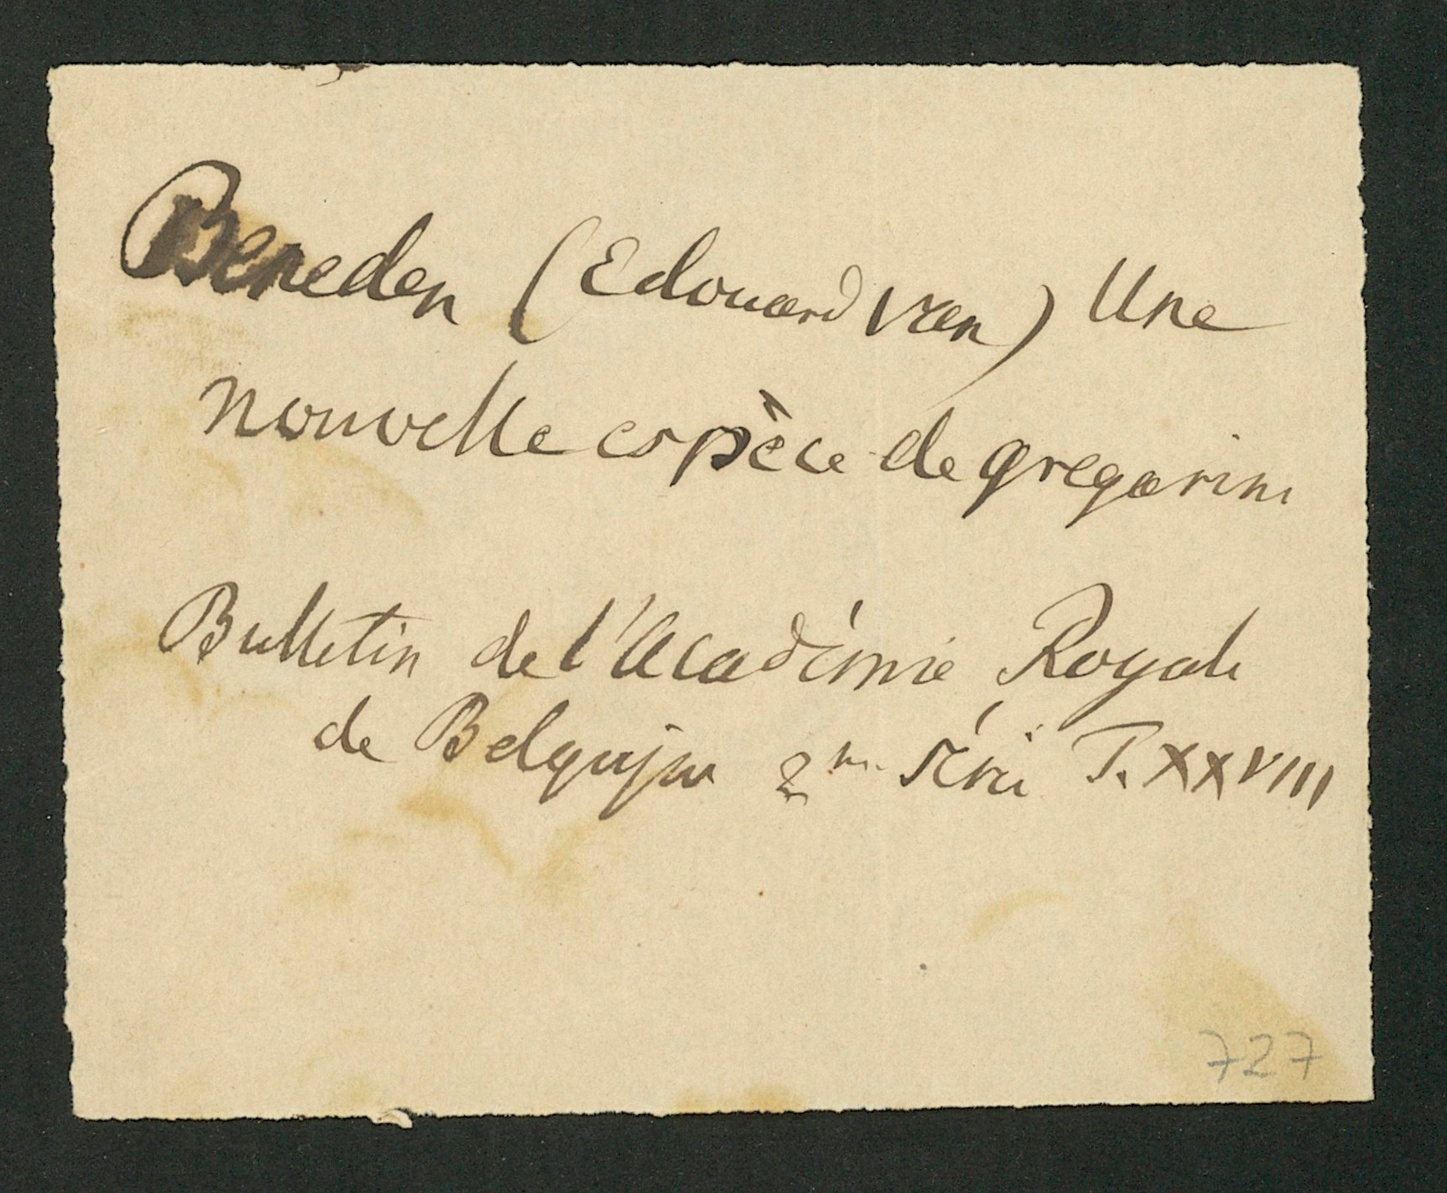 Beneden (Edouard van) Une
nouvelle espèce de gregarine
Bulletin de l'Académie Royale
de Belgique 2me série T. XXVIII
727